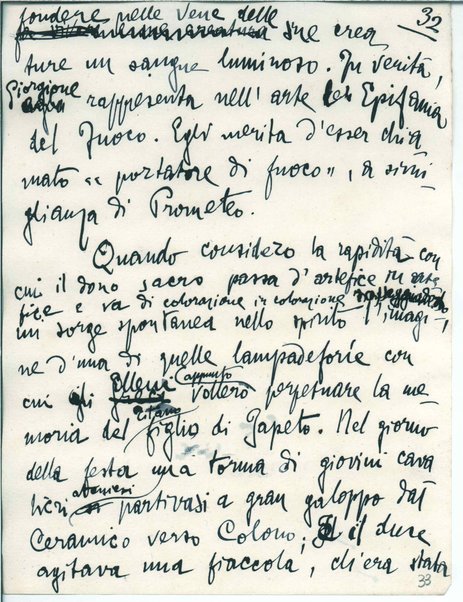 32
fondere nelle vene delle
sue crea
ture un sangue luminoso. In verità,
Giorgione rappresenta nell'arte l'Epifania
del Fuoco. Egli merita d'esser chia
mato "portatore di fuoco", a simi
glianza di Prometeo.
Quando considero la rapidità con
cui il dono sacro passa d'artefice in arte
fice e va di colorazione in colorazione rosseggiando,
mi sorge spontanea nello spirito l'imagi-
ne d'una di quelle lampadeforie con
cui gli Elleni appunto vollero perpetuare la me
moria del titano figlio di Japeto. Nel giorno
della festa una torma di giovini cava
lieri ateniesi partivasi a gran galoppo dal
Ceramico verso Colono; il duce
agitava una fiaccola, ch'era stata
33